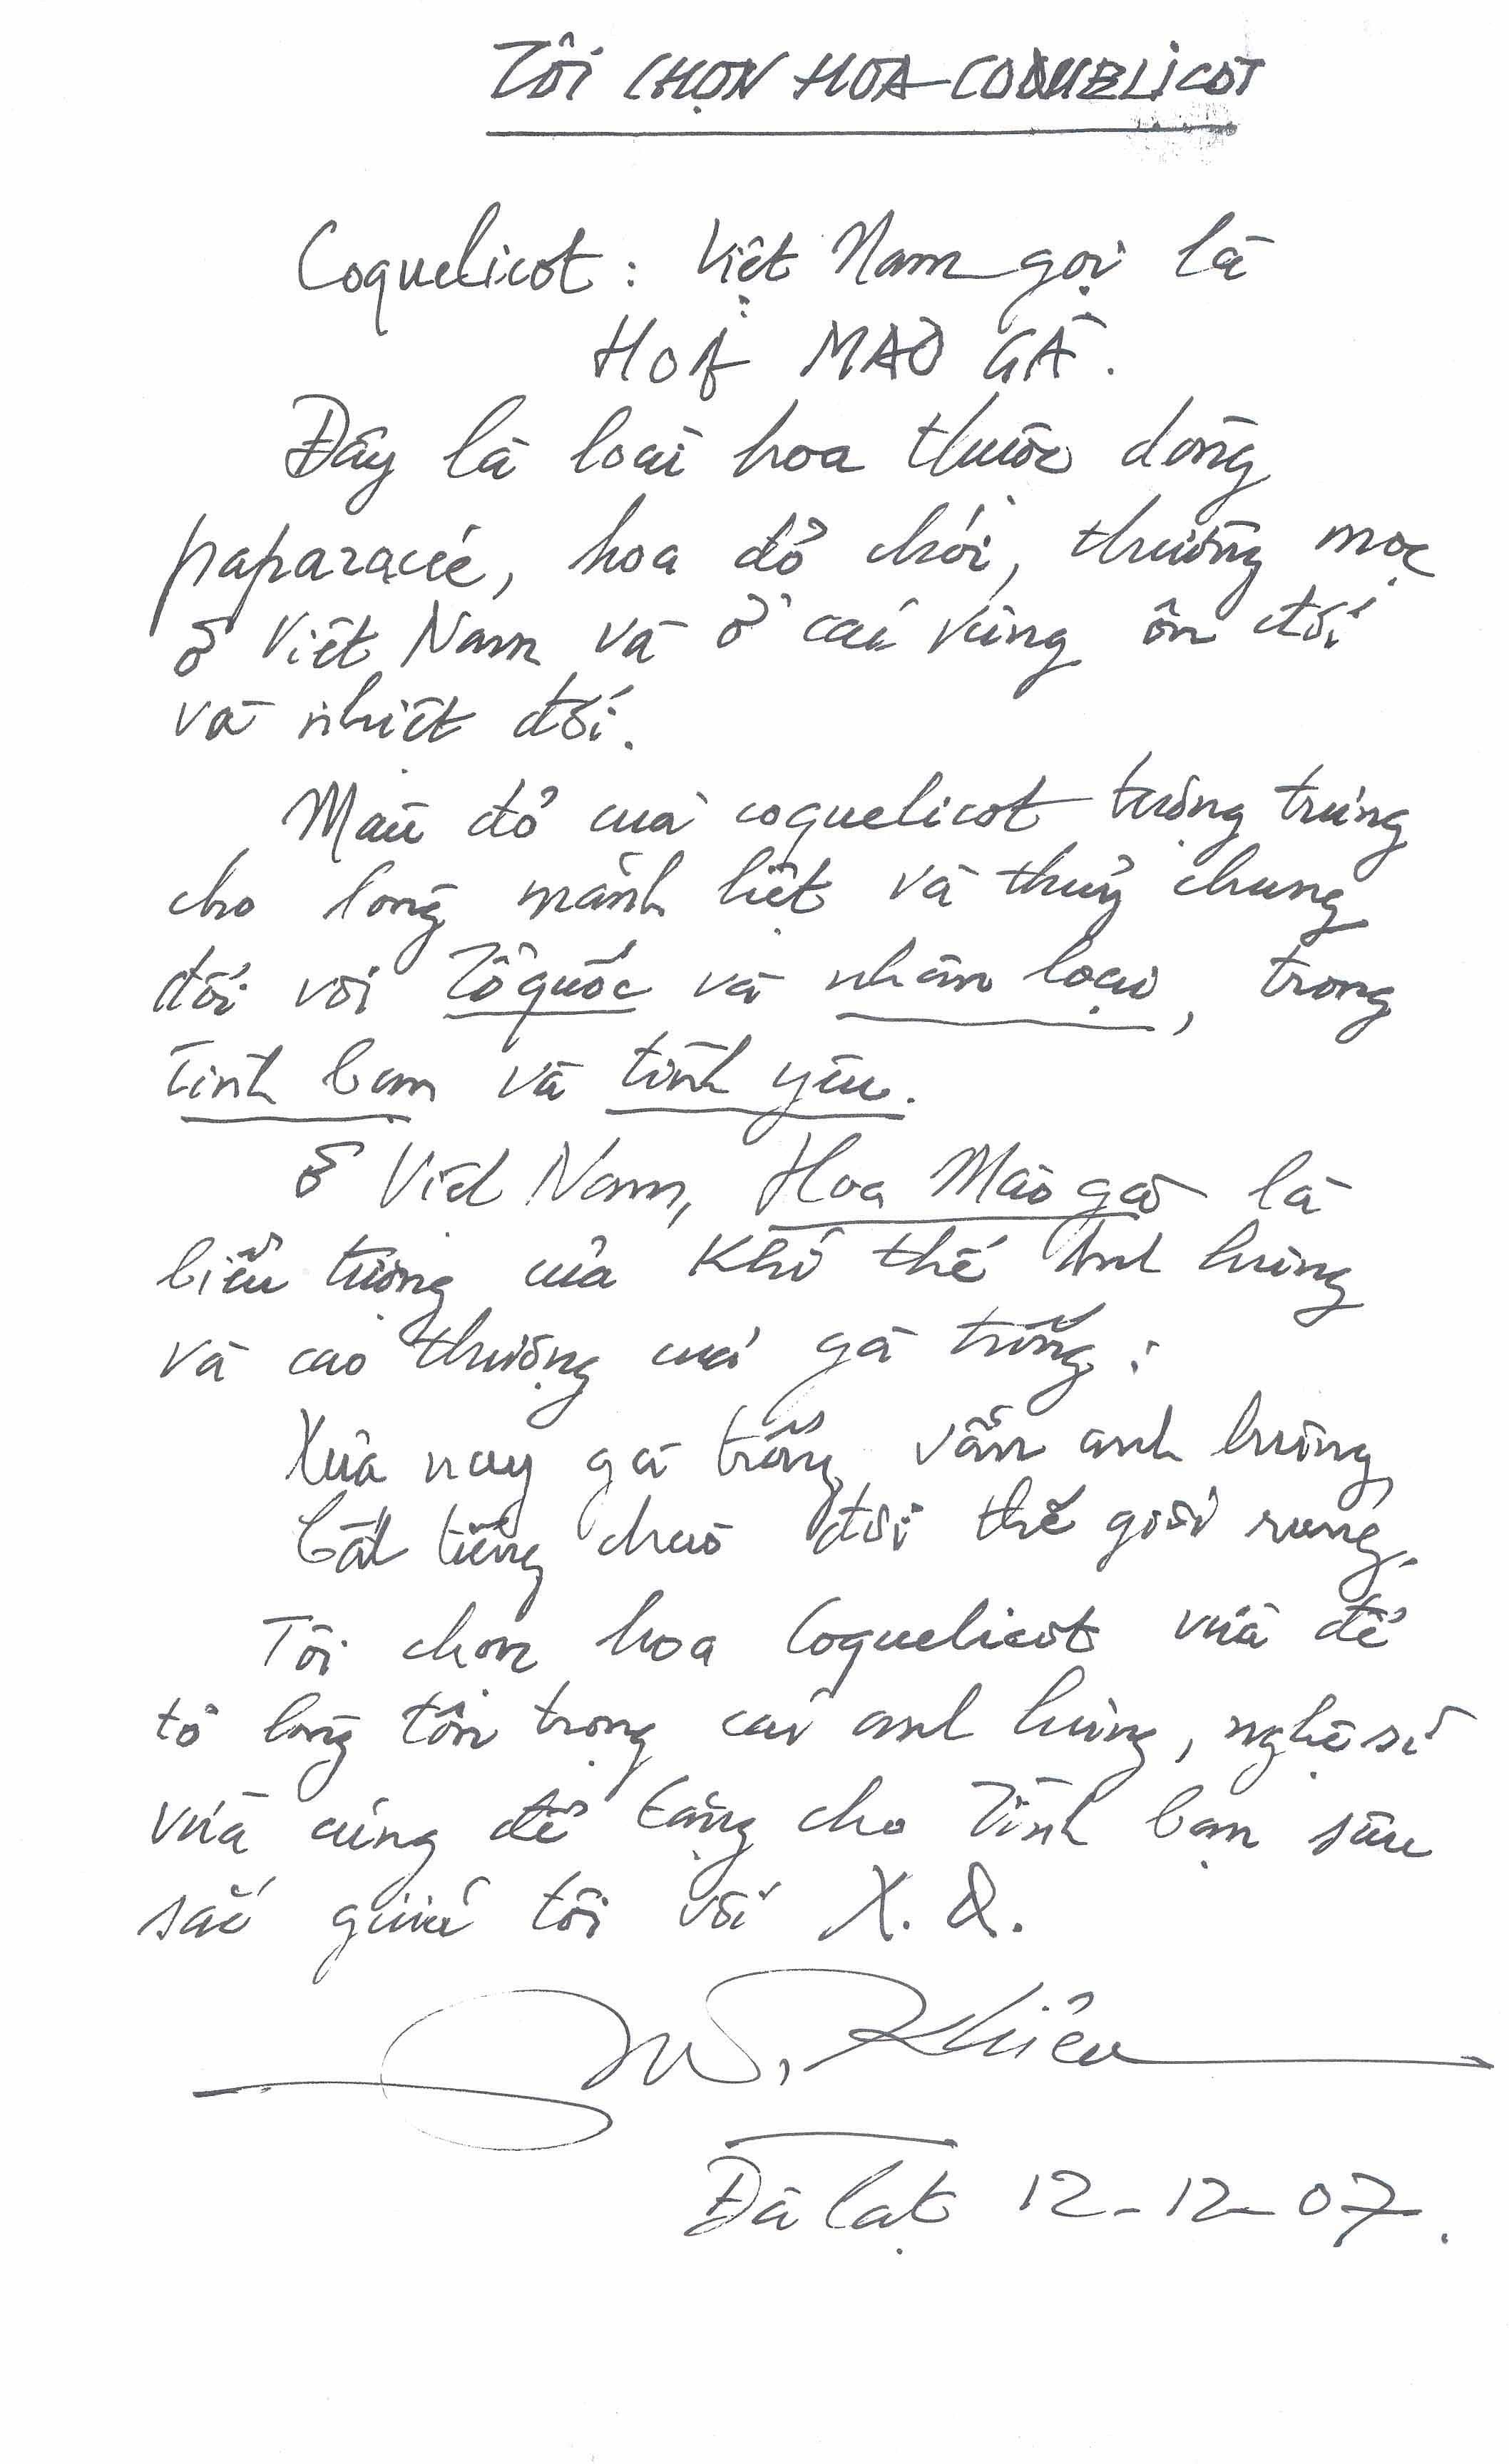 TÔI CHỌN HOA COQUELICOT
Coquelicot : Việt Nam gọi là
HOA MÀO GÀ.
Đây là loài hoa thuộc dòng
paparacée, hoa đỏ chói, thường mọc
ở Việt Nam và ở các vùng ôn đới
và nhiệt đới.
Màu đỏ của coquelicot tượng trưng
cho lòng mãnh liệt và thủy chung
đối với Tổ quốc và nhân loại, trong
tình bạn và tình yêu.
Ở Việt Nam, Hoa Mào gà là
biểu tượng của khí thế anh hùng
và cao thượng của gà trống :
Xưa nay gà trống vẫn anh hùng
Cất tiếng chào đời thế giới rung.
Tôi chọn hoa Coquelicot vừa để
tỏ lòng tôn trọng các anh hùng, nghệ sĩ
vừa cũng để tặng cho tình bạn sâu
sắc giữa tôi với X. Q.
Khiêu
Đà lạt 12-12-07.